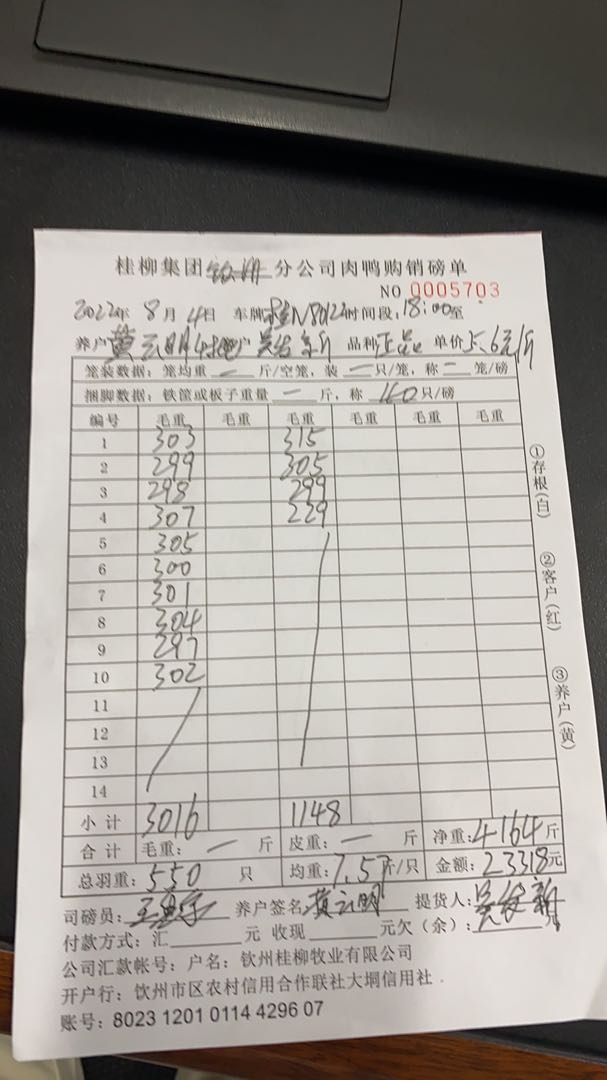 桂柳集团钦州分公司肉鸭购销磅单
NO 0005703
2022年 8月 4日 车牌 N8012 时间段:18:00至
养户 黄云明 户 吴 新 品种 正品 单价 5.6元/斤
笼装数据:笼均重 一 斤/空笼,装 一 只/笼,称 一 笼/磅
捆脚数据:铁筐或板子重量 一 斤,称 160 只/磅
编号 毛重 毛重 毛重 毛重 毛重 毛重
1 303 315
2 299 305
3 298 299
4 307 229
5 305
6 300
7 301
8 304
9 297
10 302
11
12
13
14
小计 3016 1148
合计 毛重: 一 斤 皮重: 一 斤 净重:4164斤
总羽重:550 只 均重:7.5斤/只 金额:23318元
司磅员: 养户签名 黄云明 提货人:吴 新
付款方式:汇 元 收现 元欠(余): 元
公司汇款帐号:户名:钦州桂柳牧业有限公司
开户行:钦州市区农村信用合作联社大垌信用社
账号:8023 1201 0114 4296 07
①存根(白)
②客户(红)
③养户(黄)